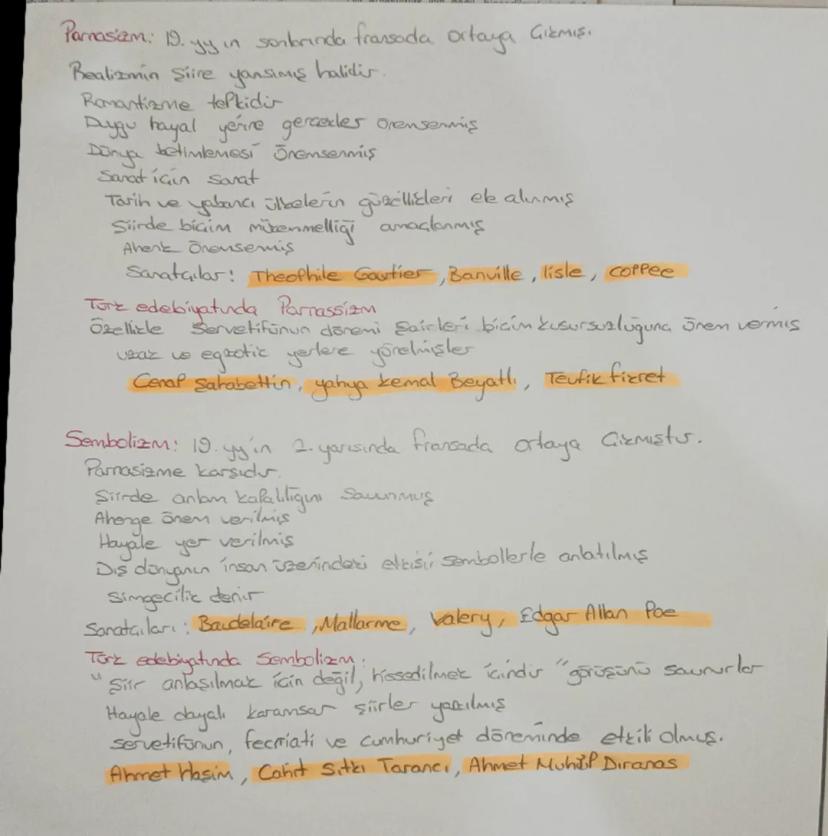 Parnasizm: 19. yy ın sonlarında fransada ortaya Çıkmış.
Realizmin Şiire yansımış halidir.
Romantizme tepkidir
Duygu hayal yerine gerçekler önemsenmiş
Dünya betimlemesi Önemsenmiş
Sanat için sanat
Tarih ve yabancı ülkelerin güzellikleri ele alınmış
Şiirde biçim mükemmelliği amaçlanmış
Ahenk Önemsemiş
Sanatçılar: Theophile Gautier, Banville, lisle, coppee
Türk edebiyatında Parnassizm
Özellikle Servetifünun dönemi Şairleri biçim kusursuzluğuna önem vermiş
uzak ve egzotik yerlere yönelmişler
Cenap Şahabettin, yahya kemal Beyatlı, Tevfik fikret
Sembolizm: 19. yy'ın 2. yarısında fransada ortaya Çıkmıştır.
Parnasizme karşıdır.
Şiirde anlam kapalılığını Savunmuş
Ahenge önem verilmiş
Hayale yer verilmiş
Dış dünyanın insan üzerindeki etkisi sembollerle anlatılmış
Simgecilik denir
Sanatçıları: Baudelaire, Mallarme, Valery, Edgar Allan Poe
Türk edebiyatında Sembolizm:
"Şiir anlaşılmak için değil, hissedilmek içindir" görüşünü savunurlar
Hayale dayalı karamsar şiirler yazılmış
servetifünun, fecriati ve cumhuriyet döneminde etkili olmuş.
Ahmet Haşim, Cahit Sıtkı Tarancı, Ahmet Muhip Dıranas